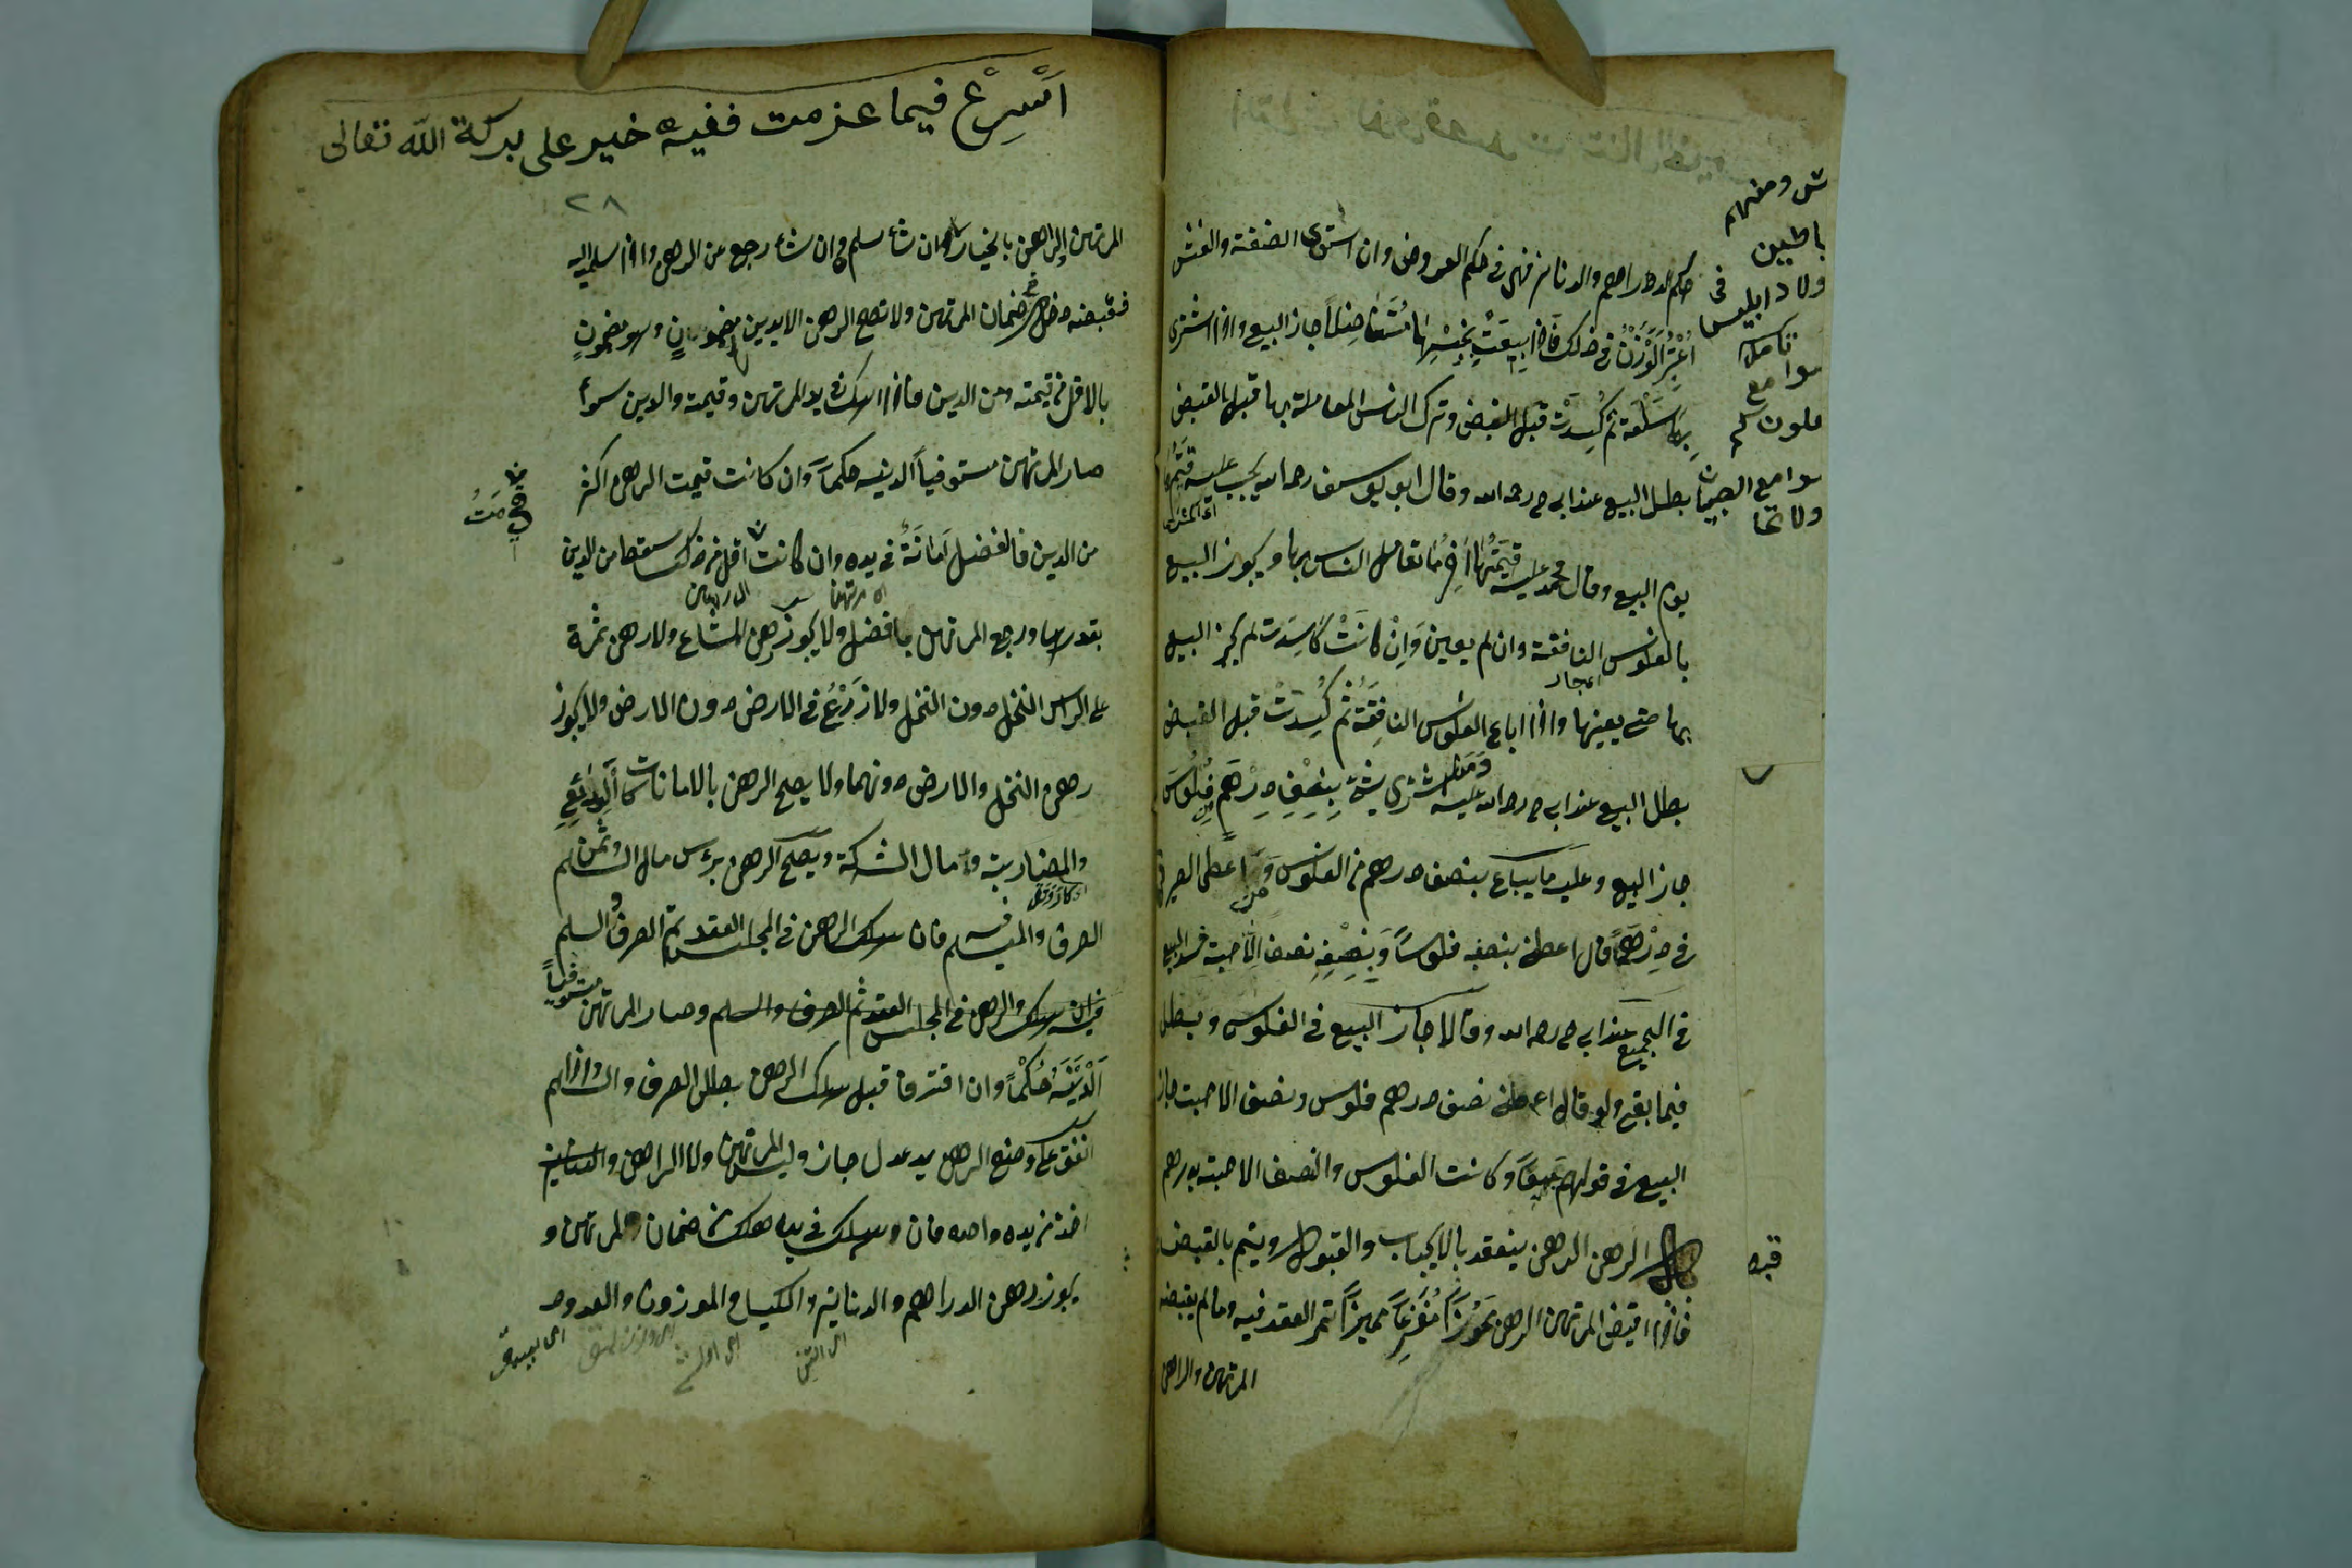 في حكم الدراهم والدنانير فهي في حكم العروض وان استوى الفضة والغش
اُعْتُبِرَ الْوَزْنُ في ذلك فَاذا بِيعَتْ بِجِنْسِهَا مُتَفَاضِلاً جاز البيع واذا اشترى
بها سَلْعَة ثم كُسِدَتْ قبل القبض وترك الناس المعاملة بها قبل القبض
بطل البيع عند ابى ح رحمه الله وقال ابو يوسف رحمه الله يجب عليه قيمتها
يوم البيع وقال محمد عليه قِيمَتُهَا آخِرُ مَا تعامل الناس بها ويجوز البيع
بالفلوس النافقة وان لم يعين وَاِنْ كَانَتْ كَاسِدَت لم يجز البيع
بها حتى يعينها واذا اباع الفلوس النافِقَة ثم كُسِدَتْ قبل القبض
بطل البيع عند ابى ح رحمه الله عليه وَمَن اشترى شيئ بِنِصْفِ دِرْهَمٍ فُلُوس
جاز البيع وعليه ما يباع بنصف درهم من الفلوس وَمَن اعطى الصيرفى
في دِرْهَماً قال اعطنى بنصفه فلوساً وَبِنِصْفِهِ نصفا اِلّا حبة فسد البيع
في الجميع عند ابى ح رحمه الله وقالا جاز البيع في الفلوس وبطل
فيما بقى ولو قال اعطنى نصف درهم فلوس ونصف الا حبت جاز
البيع في قولهم جميعاً وكانت الفلوس والنصف الا حبة بدرهم
كتاب الرهن الرهن ينعقد بالايجاب والقبول ويتم بالقبض
فاذا اقبض المرتهن الرهن مَحُوزًا مُفَرَّغاً مميزاً تم العقد فيه وما لم يقبضه
المرتهن والراهن
ش ومنهم
باطيين
ولاد ابليس
ملون
ولا تحا
اَسْرِعْ فيما عزمت ففيه خير على بركة الله تعالى
٢٨
المرتهن الراهن بالخيار ان شاء سلم وان شاء رجع عن الرهن واذا سلم اليه
فقبضه دخل في ضمان المرتهن ولا تصح الرهن الا بدين مضمون وهو مضمون
بالاقل من قيمته ومن الدين فاذا هلك في يد المرتهن وقيمة والدين سواء
صار المرتهن مستوفياً لدينه حكماً وان كانت قيمت الرهن اكثر
من الدين فالفضل اَمَانَةٌ في يده وان كانت اقل من ذلك سقط من الدين
بقدرها ورجع المرتهن بما فضل ولا يجوز رهن المشاع ولا رهن ثمرة
على الراس النخل دون النخل ولا زَرْعٌ في الارض دون الارض ولا يجوز
رهن النخل والارض دونهما ولا يصح الرهن بالامانات كالودائع
والمضاربة ومال الشركة ويصح الرهن براس مال السلم وثمن
الصرف والمسلم فيه فان هلك الرهن في المجلس العقد تم الصرف والسلم
فيه فان هلك الرهن في المجلس العقد تم الصرف والسلم وصار المرتهن مستوفياً
لِدَيْنِهِ حُكْماً وان افترقا قبل هلك الرهن بطل الصرف والسلم واذا
اتفق على وضع الرهن يد عدل جاز وليس المرتهن ولا الراهن
اخذ من يده واحده فان هلك في يده هلك من ضمان المرتهن و
يجوز رهن الدراهم والدنانير والكيل والموزون والمعدود